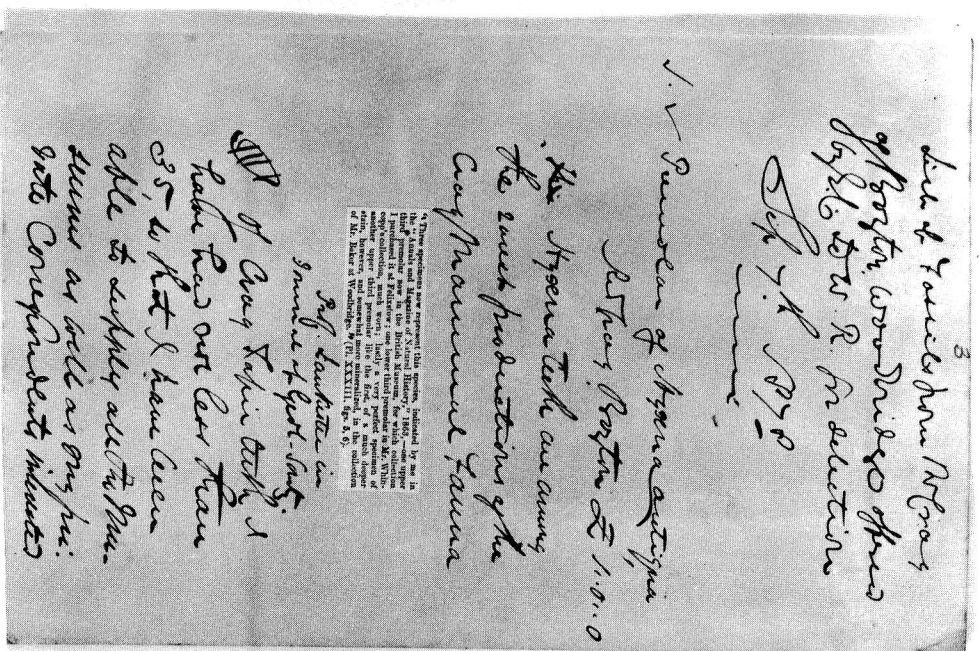 3
List of Fossils from R Crag
of Boyton Woodbridge offered
by to W. R. for selection
Sep
1. ✓ Premolar of Hyæna antiqua
R Crag Boyton £ 1..0..0
Hyæna Teeth are among
the rarest productions of the
Crag Mammal Fauna
"Three specimens now represent this species, indicated by me in
the "Annals and Magazine of Natural History," 1863,—one upper
third premolar now in the British Museum, for which collection
I purchased it at Felixstow; one lower third premolar in Mr. Whin-
copp's collection, much worn; lastly a very perfect specimen of
another upper third premolar like the first, of a much deeper
stain, however, and somewhat more mineralized, in the collection
of Mr. Baker at Woodbridge." (Pl. XXXIII, figs. 5, 6).
Prof. Lankester in
Journal of Geol. Soc.
Of Crag Tapir teeth I
have had not less than
35, so that I have been
able to supply all the Mu-
seums as well as my pri-
vate Correspondents